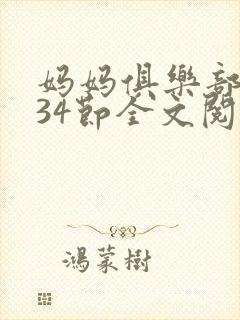 妈妈俱樂部
34節全文閱
鴻蒙樹